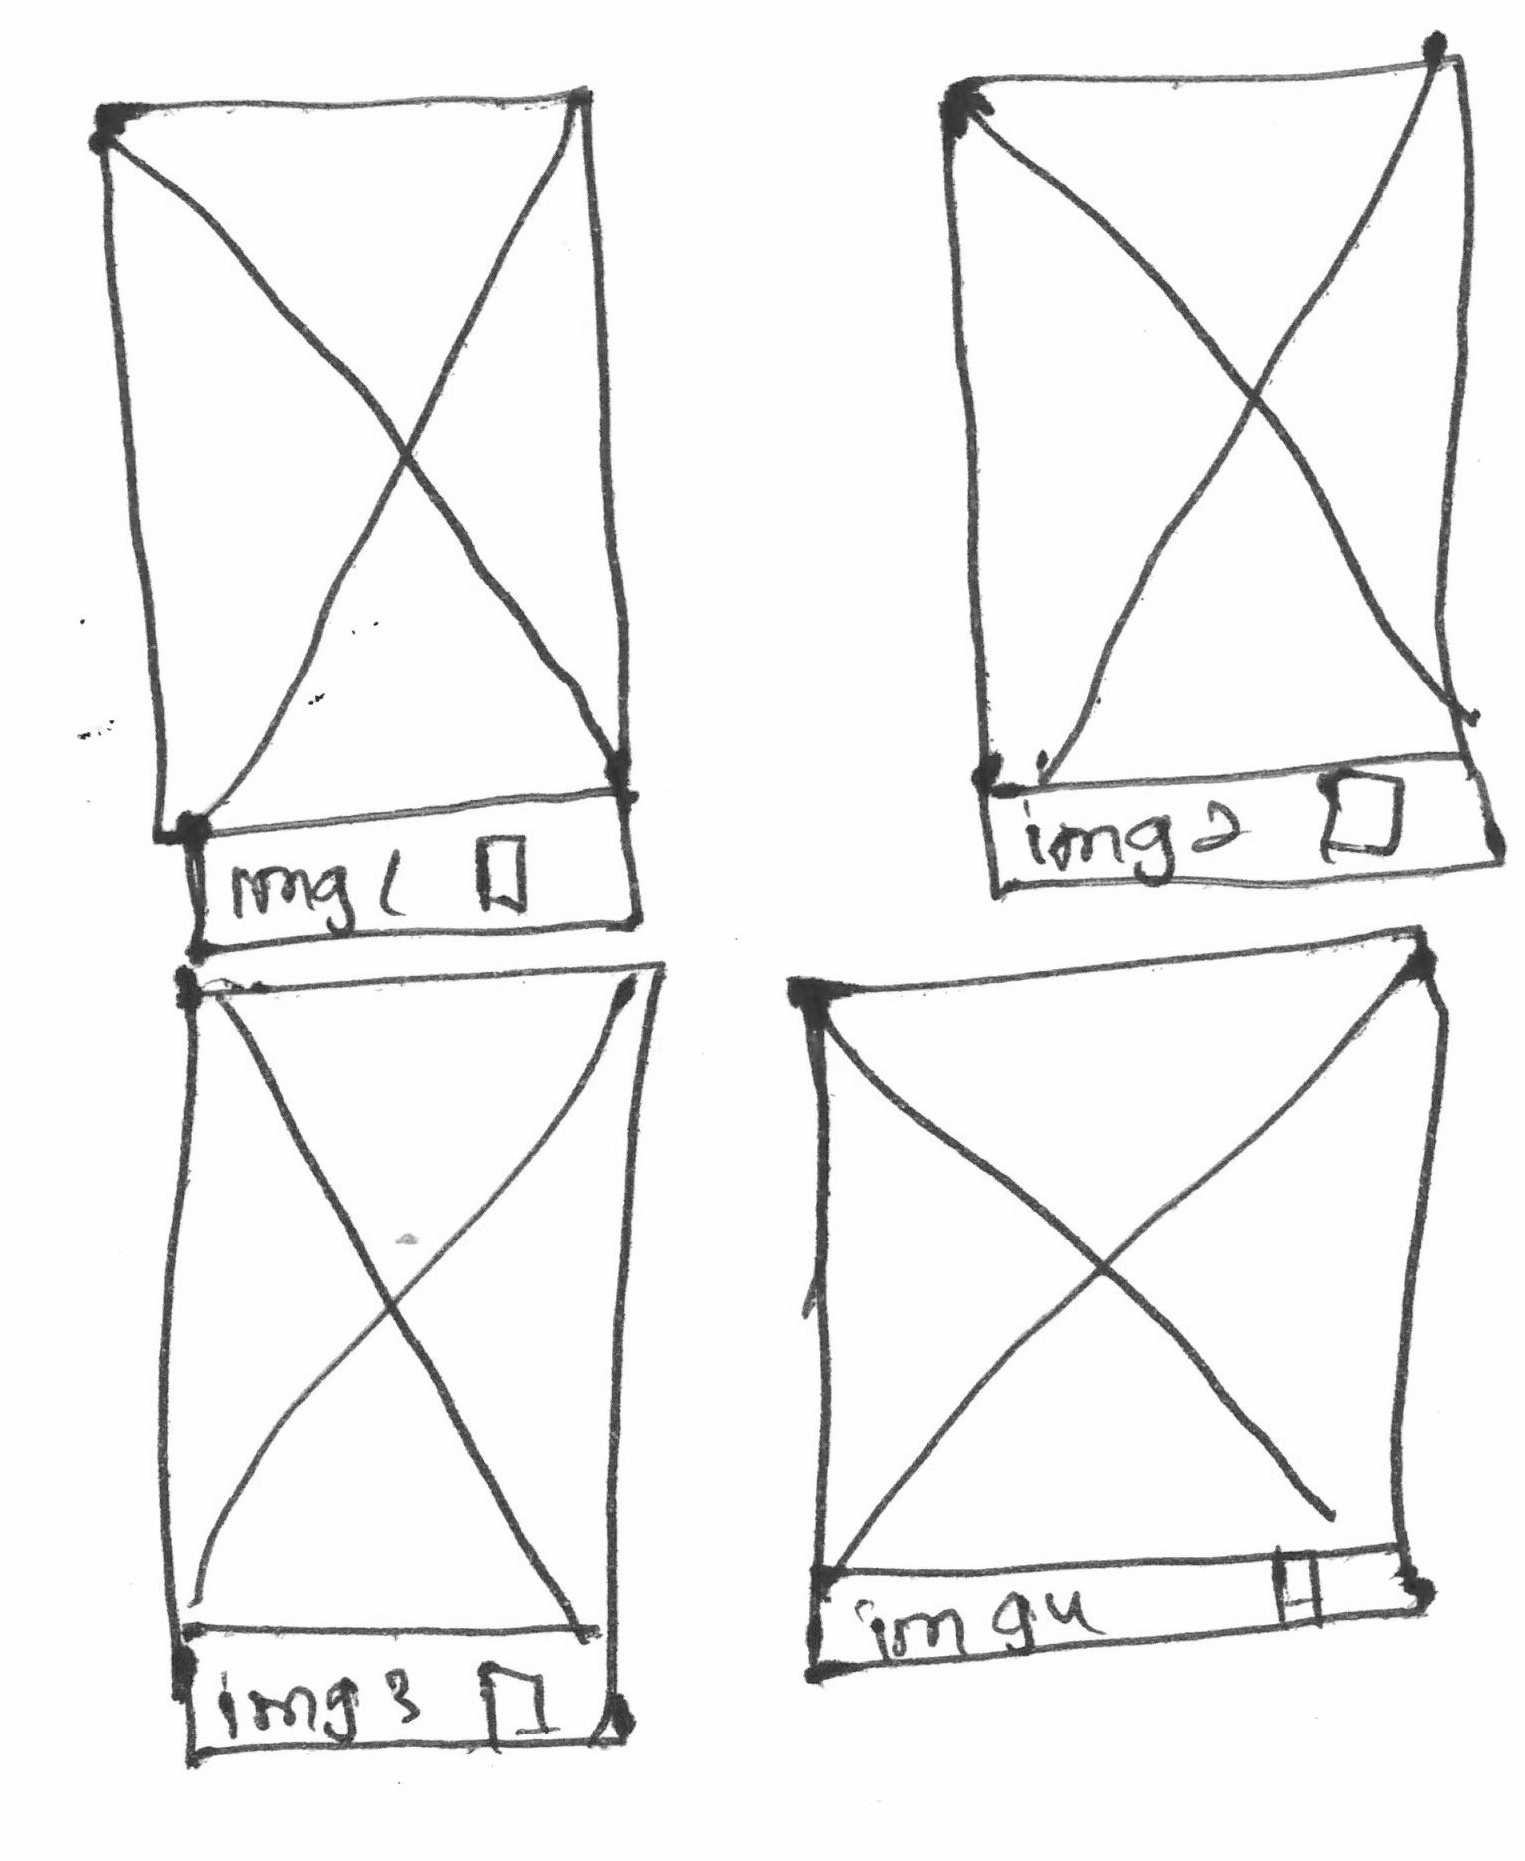 img 1
img 2
img 3
img 4